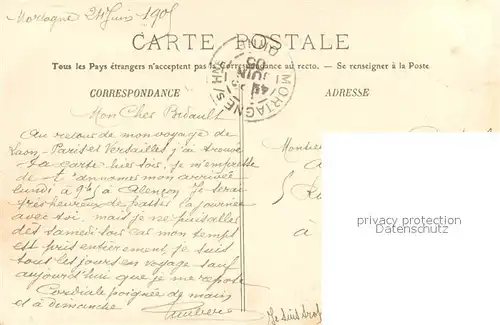 Mortagne 24 Juin 1905
CARTE POSTALE
Tous les Pays étrangers n'acceptent pas la Correspondance au recto. — Se renseigner à la Poste
CORRESPONDANCE
ADRESSE
MORTAGNE
JUIN
05
Mon Cher Briault
Au retour de mon voyage de
Laon - Paris et Versailles j'ai trouvé
ta carte hier soir, je m'empresse
de t'annoncer mon arrivée
lundi à 9h½ à Alençon Je serai
très heureux de passer la journée
avec toi, mais je ne puis aller
dès samedi soir car mon temps
est pris entièrement, je suis
tous les jours en voyage sauf
aujourd'hui que je me repose
Cordiale poignée de main
et à dimanche
Monsieur
à
privacy protection
Je suis